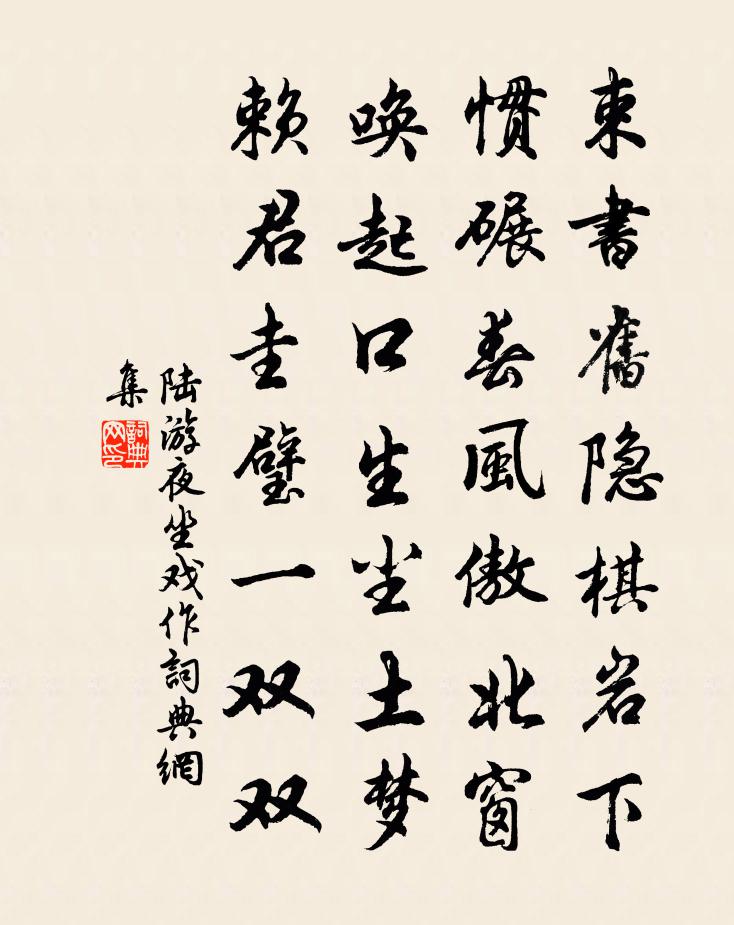 束書舊隐棋岩下
慣碾春風傲北窗
唤起口生尘土梦
赖君圭璧一双双
陆游夜坐戏作詞典網
集
詞典网印